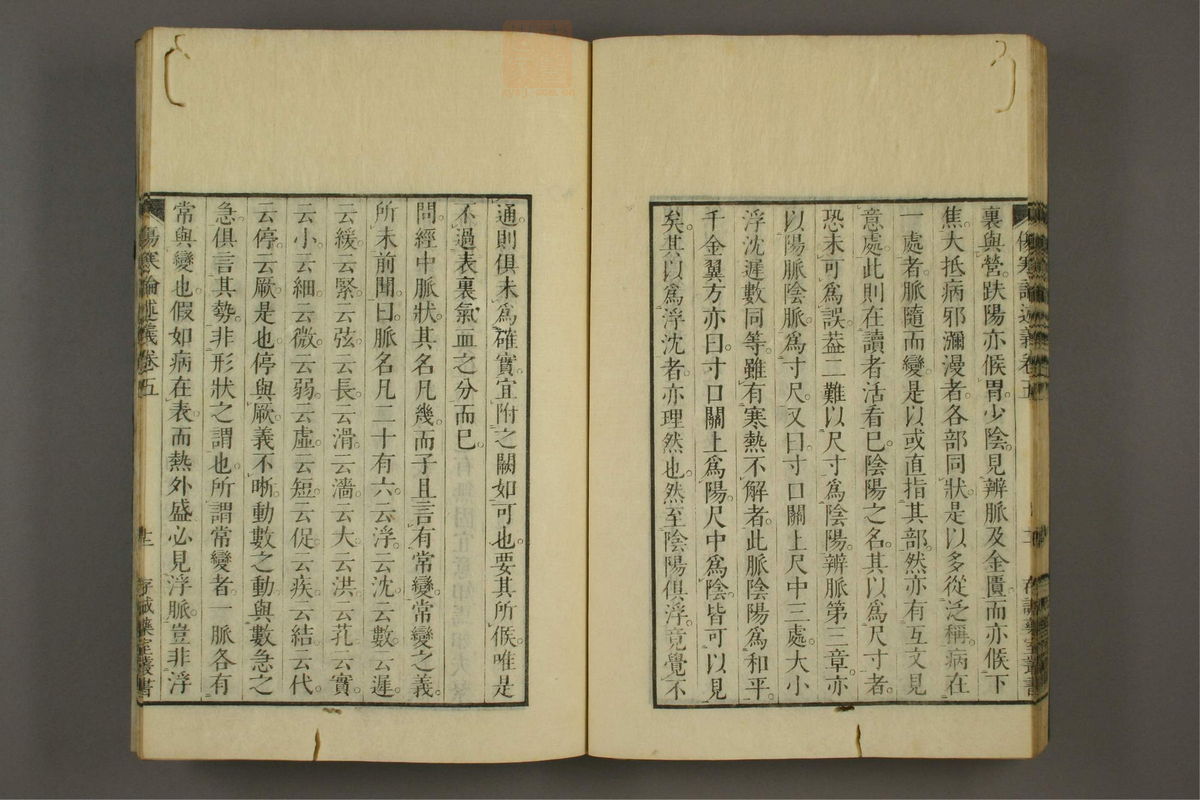 裏與營。趺陽亦候胃。少陰見辨脈及金匱。而亦候下
焦。大抵病邪瀰漫者。各部同狀。是以多從泛稱。病在
一處者。脈隨而變。是以或直指其部。然亦有互文見
意處。此則在讀者活看已。陰陽之名。其以爲尺寸者。
恐未可爲誤。葢二難以尺寸爲陰陽。辨脈第三章。亦
以陽脈陰脈。爲寸尺。又曰。寸口關上尺中三處。大小
浮沈遲數同等。雖有寒熱不解者。此脈陰陽爲和平。
千金翼方亦曰。寸口關上爲陽。尺中爲陰。皆可以見
矣。其以爲浮沈者。亦理然也。然至陰陽俱浮。竟覺不
傷寒論述義卷五
存誠藥室叢書
通。則俱未爲確實。宜附之闕如可也。要其所候。唯是
不過表裏氣血之分而已。
問。經中脈狀。其名凡幾。而子且言有常變。常變之義。
所未前聞。曰。脈名凡二十有六。云浮。云沈。云數。云遲。
云緩。云緊。云弦。云長。云滑。云濇。云大。云洪。云芤。云實。
云小。云細。云微。云弱。云虛。云短。云促。云疾。云結。云代。
云停。云厥。是也。停與厥義不晰。動數之動。與數急之
急。俱言其勢。非形狀之謂也。所謂常變者。一脈各有
常與變也。假如病在表而熱外盛。必見浮脈。豈非浮
傷寒論述義卷五
十二
存誠藥室叢書